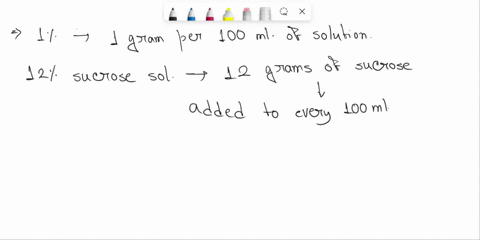 ⇒ 1% → 1 gram per 100 ml. of solution.
12% sucrose sol. → 12 grams of sucrose
↓
added to every 100 ml